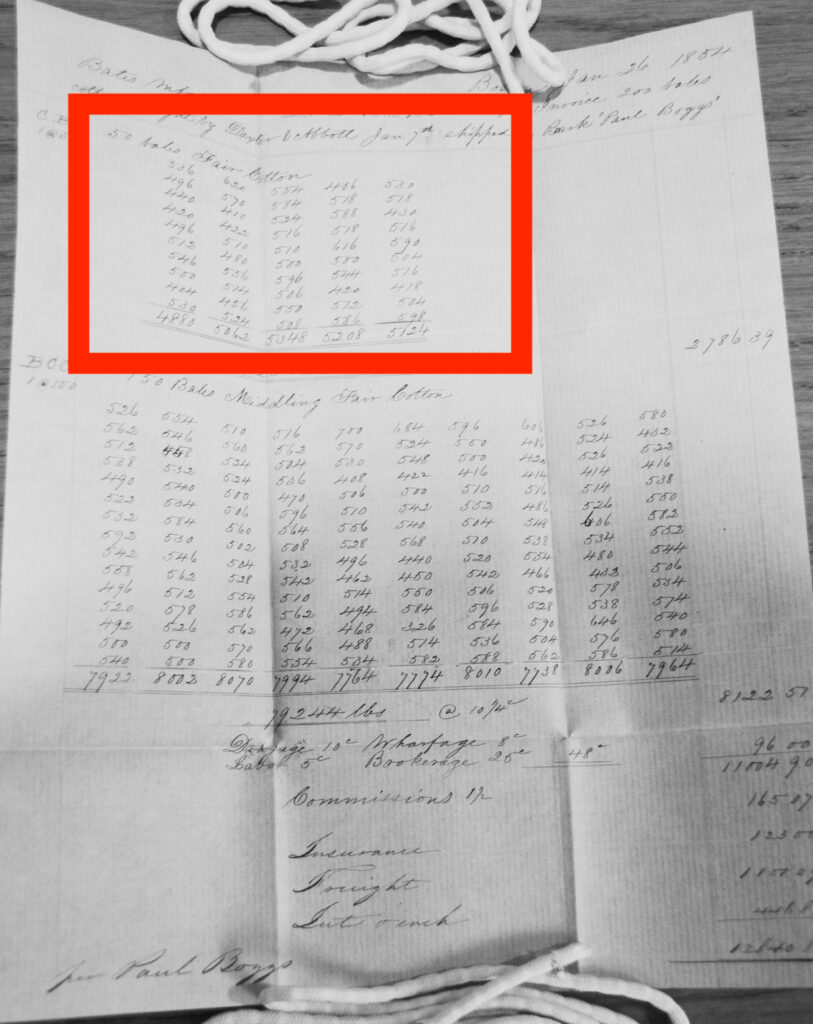 Bates Jan 26 1854
Invoice 200 bales
by Dexter & Abbott Jan 7th shipped Bark "Paul Boggs"
50 bales Fair Cotton
536 620 554 406 530
496 570 584 518 518
440 410 524 588 430
420 422 516 518 516
496 510 510 616 590
512 480 500 500 504
546 556 596 544 516
500 514 506 420 418
404 456 550 512 504
530 524 508 586 598
4880 5062 5348 5208 5124
2786 39
150 Bales Middling Fair Cotton
526 554 510 516 700 684 596 606 526 580
562 546 560 562 570 524 550 486 524 432
512 448 524 504 530 548 500 420 526 522
538 532 524 536 408 422 416 414 414 416
490 540 500 470 506 500 510 516 514 538
522 534 506 596 510 542 552 486 526 550
532 584 560 564 556 540 504 548 606 582
592 530 502 508 528 568 510 538 534 552
542 546 504 532 496 440 520 534 480 544
558 562 528 542 462 450 542 466 432 506
496 512 554 510 514 550 506 520 578 534
520 578 586 562 494 584 596 528 538 574
492 526 562 472 468 326 584 590 646 540
500 500 570 566 488 514 536 504 576 580
540 500 580 554 534 582 588 562 586 514
7922 8002 8070 7994 7764 7774 8010 7738 8006 7964
79244 lbs @ 10 1/4c 8122 51
Drayage 10c Wharfage 8c
Labor 5c Brokerage 25c 48c 96 00
11004 90
Commissions 1½ 165 07
Insurance
Freight
per Paul Boggs